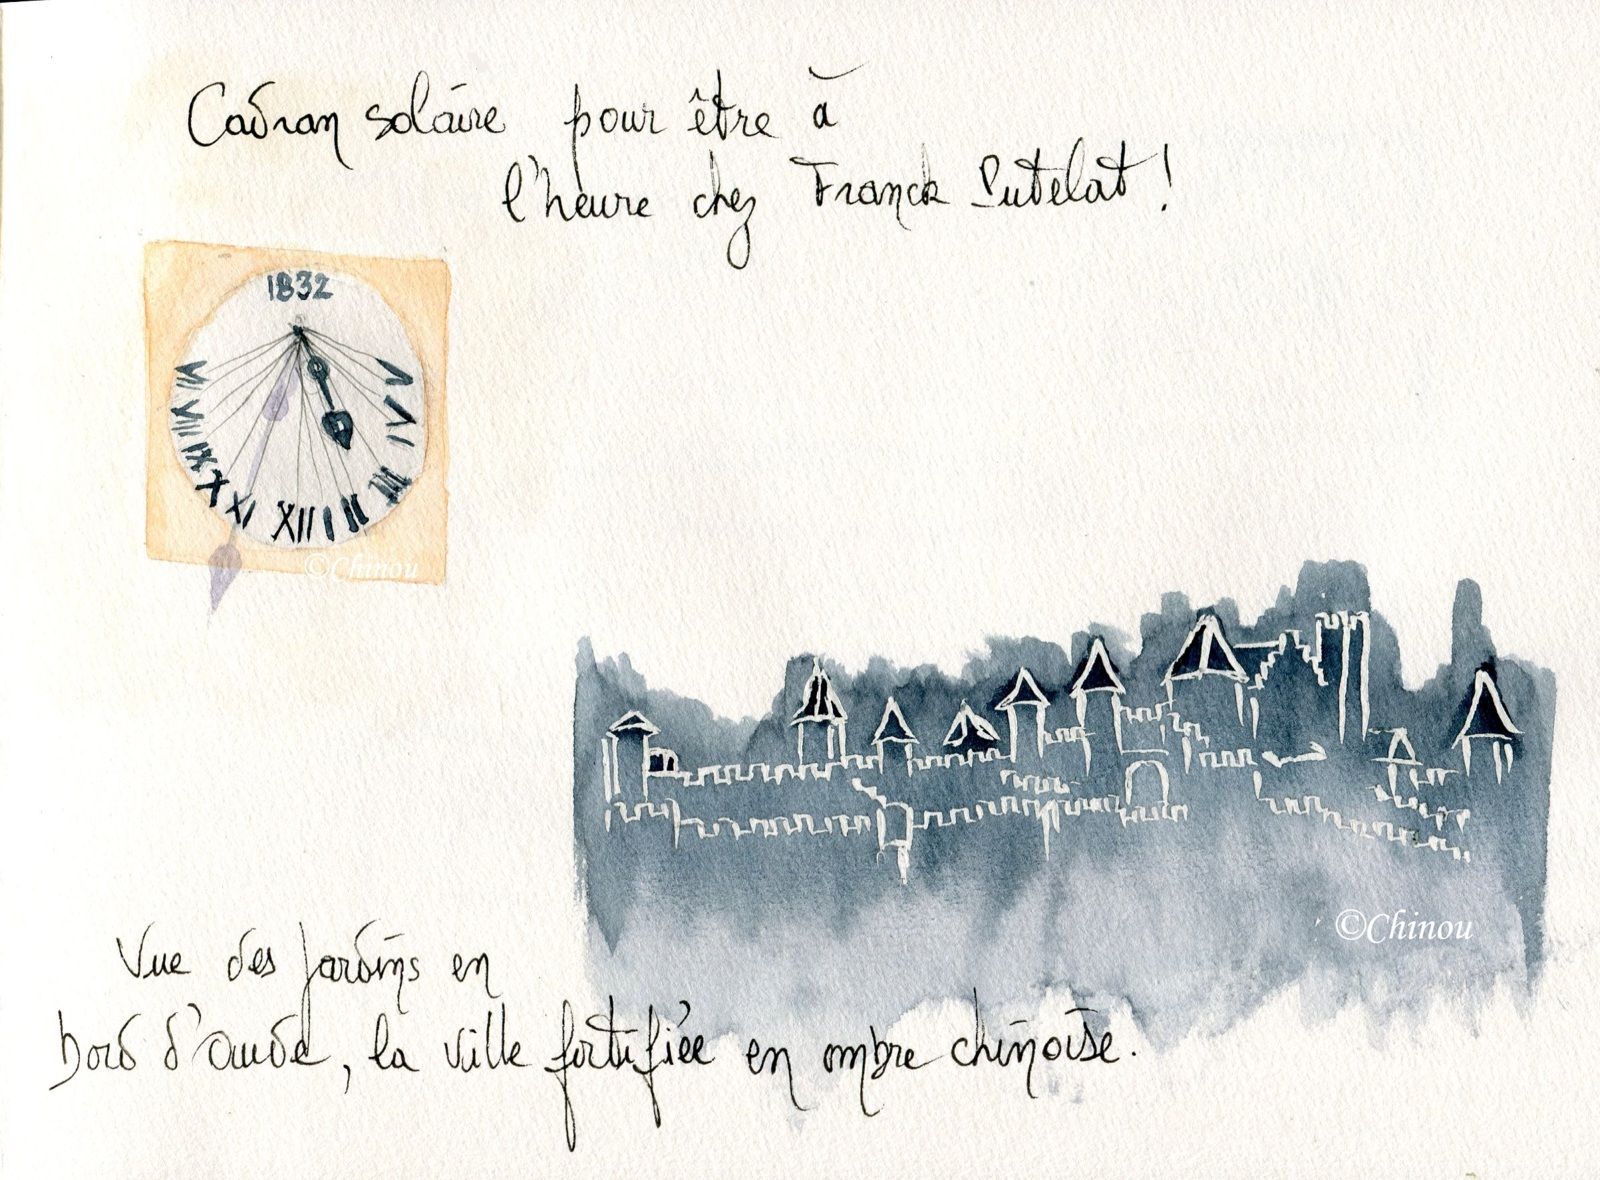 Cadran solaire pour être à
l'heure chez Franck Putelat !
1832
VII
VIII
IX
X
XI
XII
I
II
III
IV
V
©Chinou
©Chinou
Vue des Jardins en
bord d'Aude, la ville fortifiée en ombre chinoise.